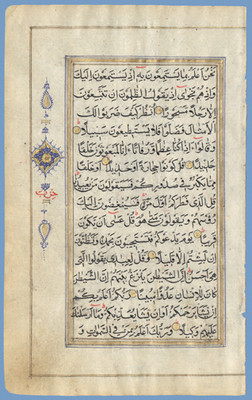 نَحْنُ أَعْلَمُ بِمَا يَسْتَمِعُونَ بِهِ إِذْ يَسْتَمِعُونَ إِلَيْكَ
وَإِذْ هُمْ نَجْوَى إِذْ يَقُولُ الظَّلِمُونَ إِنْ تَتَّبِعُونَ
إِلَّا رَجُلًا مَسْحُورًا اُنْظُرْ كَيْفَ ضَرَبُوا لَكَ
الْأَمْثَالَ فَضَلُّوا فَلَا يَسْتَطِيعُونَ سَبِيلًا
وَقَالُوا ءَإِذَا كُنَّا عِظَامًا وَرُفَاتًا ءَإِنَّا لَمَبْعُوثُونَ خَلْقًا
جَدِيدًا قُلْ كُونُوا حِجَارَةً أَوْ حَدِيدًا أَوْ خَلْقًا
مِمَّا يَكْبُرُ فِي صُدُورِكُمْ فَسَيَقُولُونَ مَنْ يُعِيدُنَا
قُلِ الَّذِي فَطَرَكُمْ أَوَّلَ مَرَّةٍ فَسَيُنْغِضُونَ إِلَيْكَ
رُءُوسَهُمْ وَيَقُولُونَ مَتَى هُوَ قُلْ عَسَى أَنْ يَكُونَ
قَرِيبًا يَوْمَ يَدْعُوكُمْ فَتَسْتَجِيبُونَ بِحَمْدِهِ وَتَظُنُّونَ
إِنْ لَبِثْتُمْ إِلَّا قَلِيلًا وَقُلْ لِعِبَادِي يَقُولُوا الَّتِي
هِيَ أَحْسَنُ إِنَّ الشَّيْطَنَ يَنْزَغُ بَيْنَهُمْ إِنَّ الشَّيْطَنَ
كَانَ لِلْإِنْسَانِ عَدُوًّا مُبِينًا رَبُّكُمْ أَعْلَمُ بِكُمْ
إِنْ يَشَأْ يَرْحَمْكُمْ أَوْ إِنْ يَشَأْ يُعَذِّبْكُمْ وَمَا أَرْسَلْنَاكَ
عَلَيْهِمْ وَكِيلًا وَرَبُّكَ أَعْلَمُ بِمَنْ فِي السَّمَوَاتِ وَ